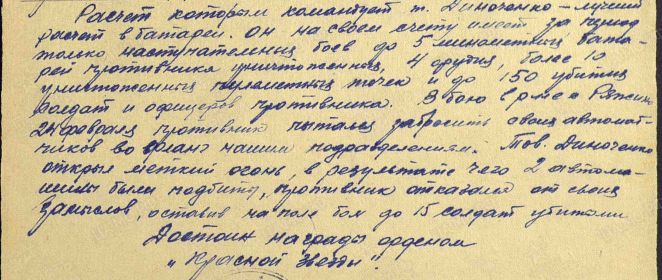 Расчет которым командует т. Диноченко – лучший
расчет в батареи. Он на своем счету имеет за период
только наступательных боев до 5 минометных бата-
рей противника уничтоженных, 4 других, более 10
уничтоженных пулеметных точек и до 150 убитых
солдат и офицеров противника. В бою в р-не
24 февраля противник пытался забросить своих автомат-
чиков во фланг нашим подразделениям. Тов. Диноченко
открыл меткий огонь, в результате чего 2 автома-
шины были подбиты, противник отказался от своих
замыслов, оставив на поле боя до 15 солдат убитыми
Достоин награды орденом
„Красной Звезды".